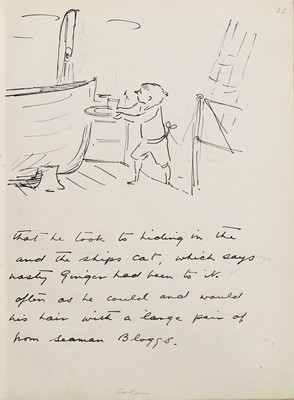 22
that he took to hiding in the
and the ships cat, which says
nasty Ginger had been to N.
often as he could and would
his hair with a large pair of
from Seaman Bloggs.